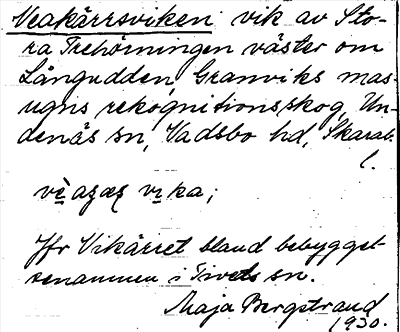 Veakärrsviken vik av Sto-
ra Trehörningen väster om
Långudden, Granviks mas-
ugns rekognitionsskog, Un-
denäs sn, Vadsbo hd, Skarab.
l.
vika;
Jfr Vikärret bland bebyggel-
senamnen i Tiveds sn.
Maja Bergstrand
1930.